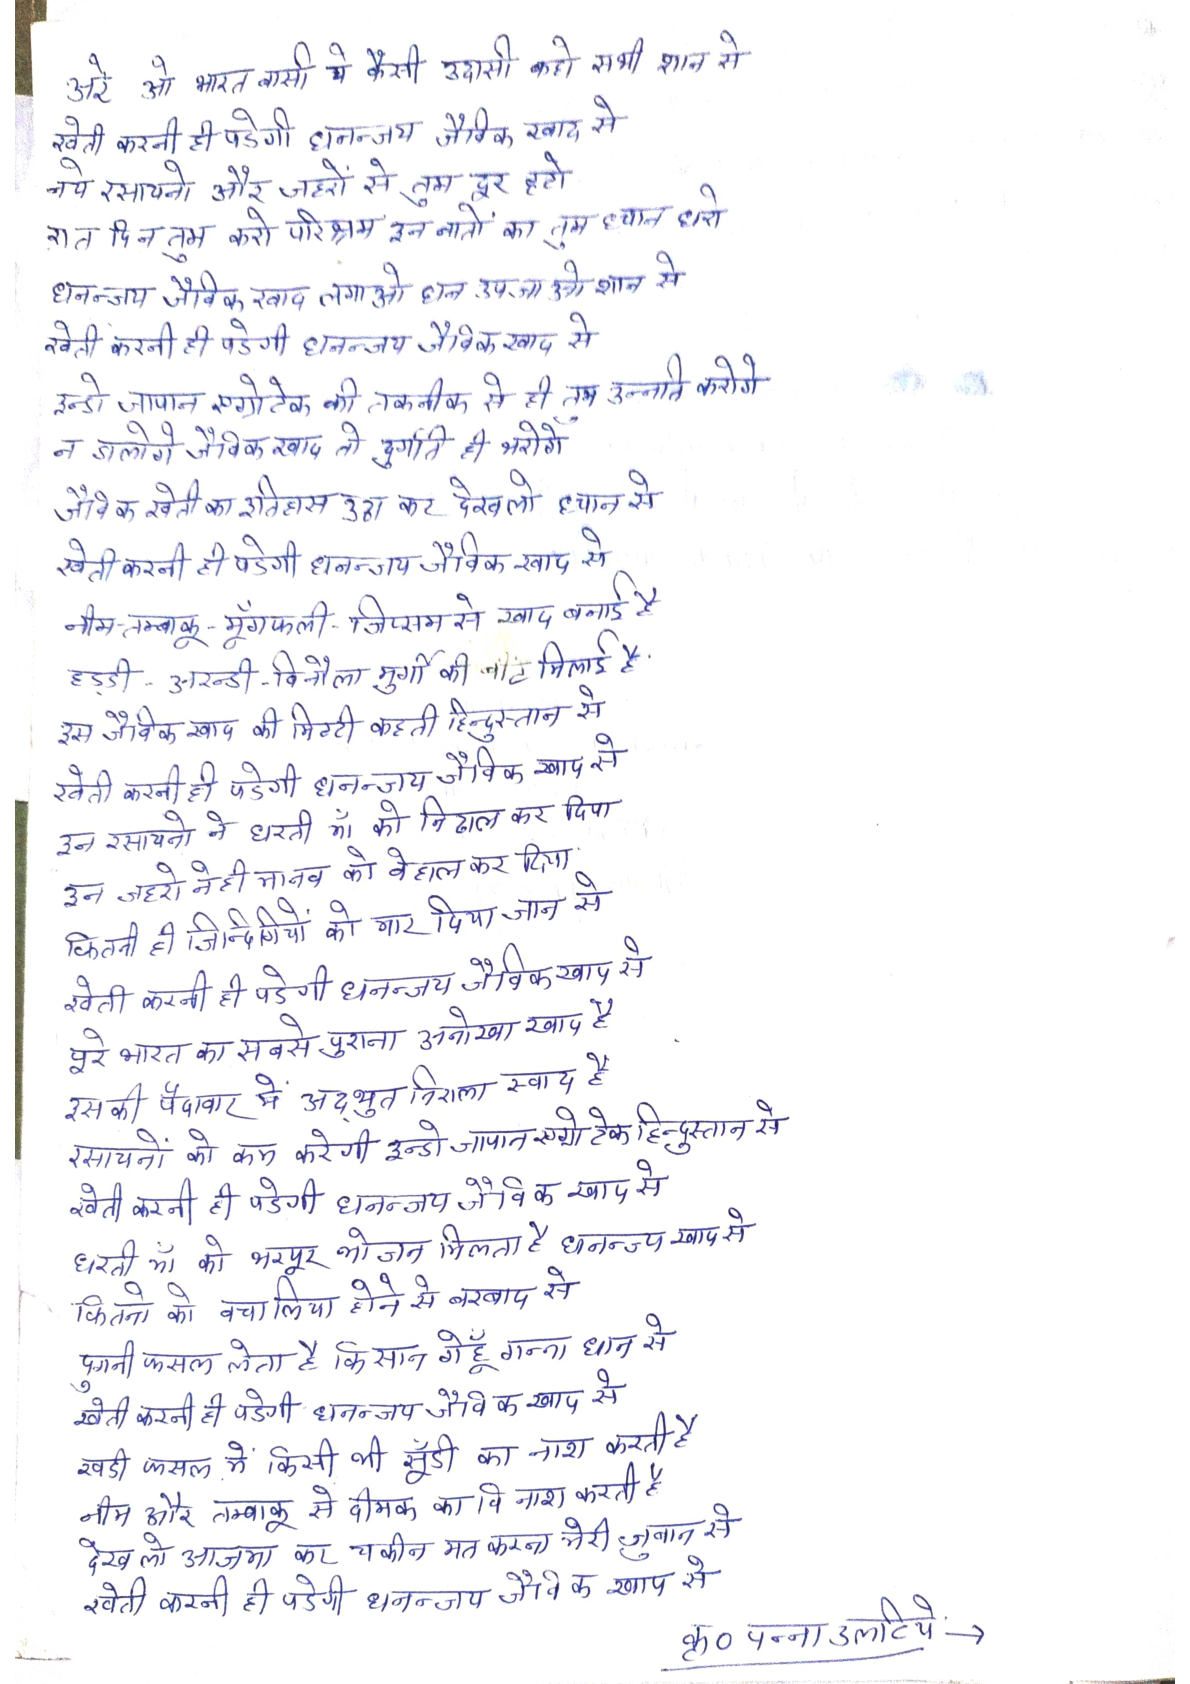 अरे ओ भारत वासी ये कैसी उदासी कहो सभी शान से
खेती करनी ही पडेगी धनन्जय जैविक खाद से
नये रसायनो और जहरों से तुम दूर हटो
रात दिन तुम करो परिश्रम इन बातों का तुम ध्यान धरो
धनन्जय जैविक खाद लगाओ धन उपजाओ शान से
खेती करनी ही पडेगी धनन्जय जैविक खाद से
इन्डो जापान एग्रोटेक की तकनीक से ही तुम उन्नति करोगे
न डालोगे जैविक खाद तो दुर्गति ही भरोगे
जैविक खेती का इतिहास उठा कर देखलो ध्यान से
खेती करनी ही पडेगी धनन्जय जैविक खाद से
नीम-तम्बाकू-मूँगफली-जिप्सम से खाद बनाई है
हड्डी - अरन्डी - विनौला मुर्गी की बीट मिलाई है
इस जैविक खाद की मिटटी कहती हिन्दुस्तान से
खेती करनी ही पडेगी धनन्जय जैविक खाद से
इन रसायनो ने धरती माँ को निढाल कर दिया
इन जहरो ने ही मानव को वेहाल कर दिया
कितनी ही जिन्दिगियों को मार दिया जान से
खेती करनी ही पडेगी धनन्जय जैविक खाद से
पूरे भारत का सबसे पुराना अनोखा खाद है
इस की पैदावार में अद्भुत निराला स्वाद है
रसायनों को कम करेगी इन्डो जापान एग्रो टेक हिन्दुस्तान से
खेती करनी ही पडेगी धनन्जय जैविक खाद से
धरती माँ को भरपूर भोजन मिलता है धनन्जय खाद से
कितनो को बचा लिया होने से बरबाद से
दुगनी फसल लेता है किसान गेहूँ गन्ना धान से
खेती करनी ही पडेगी धनन्जय जैविक खाद से
खडी फसल में किसी भी सूँडी का नाश करती है
नीम और तम्बाकू से दीमक का वि नाश करती है
देख लो आजमा कर यकीन मत करना मेरी जुबान से
खेती करनी ही पडेगी धनन्जय जैविक खाद से
कृ० पन्ना उलटिये →